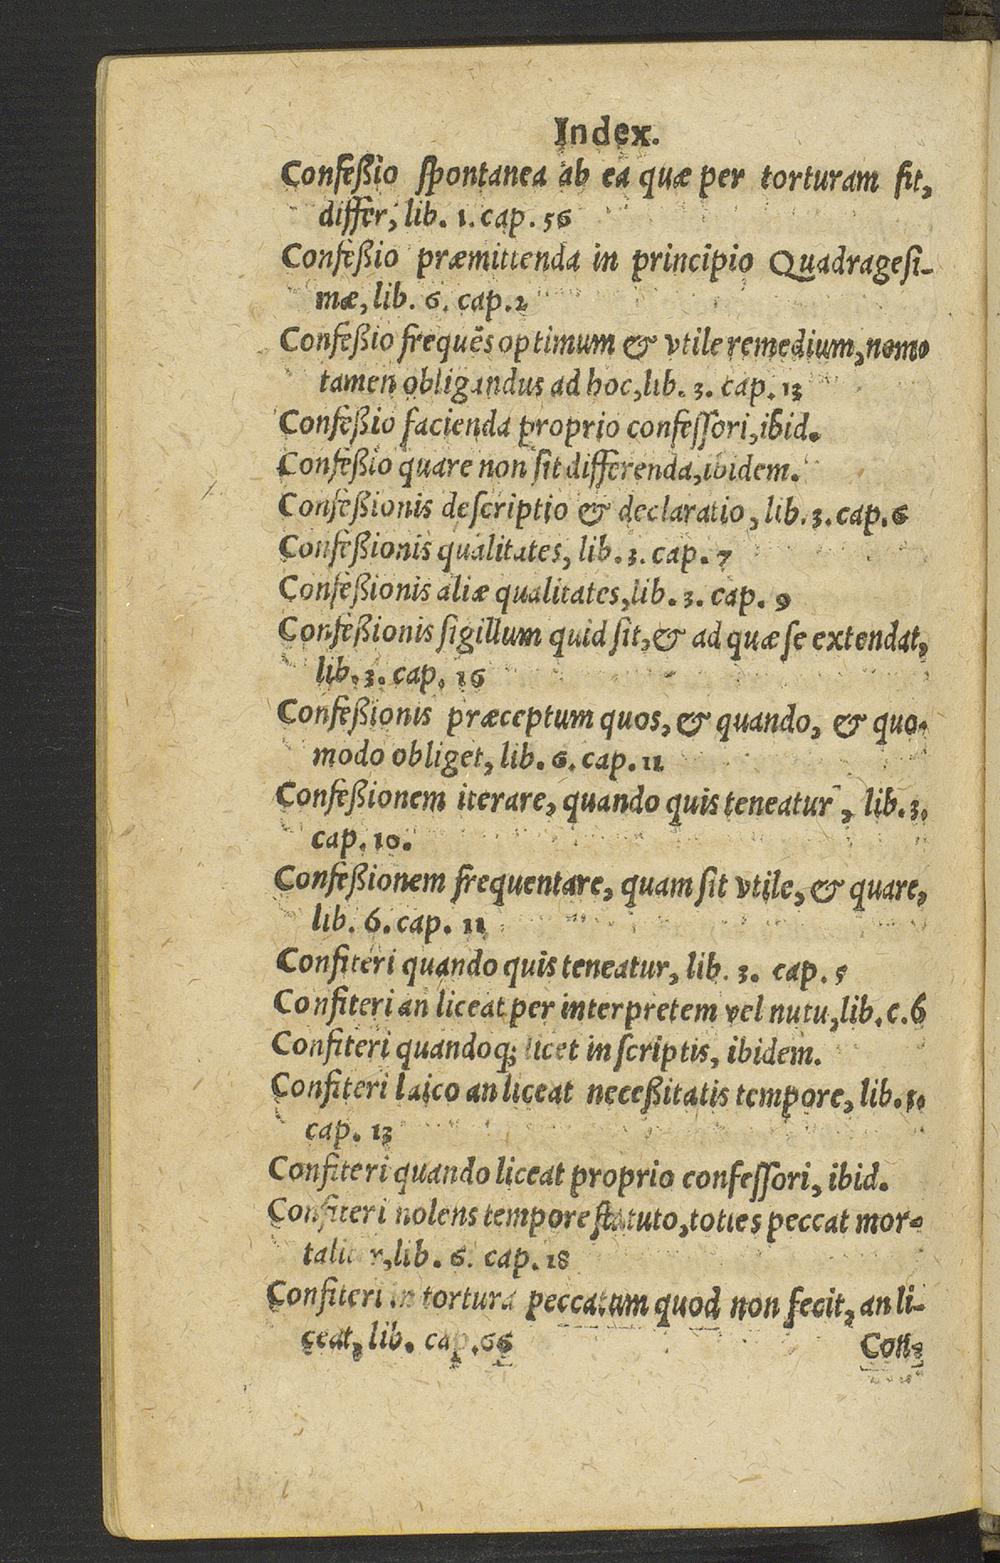 Index.
Confeßio ſpontanea ab ea quæ per torturam fit,
differ, lib. 1. cap. 56
Confeßio præmittenda in principio Quadrageſi-
mæ, lib. 6. cap. 2
Confeßio frequẽs optimum & vtile remedium, nemo
tamen obligandus ad hoc, lib. 3. cap. 13
Confeßio facienda proprio confeſſori, ibid.
Confeßio quare non ſit differenda, ibidem.
Confeßionis deſcriptio & declaratio, lib. 3. cap. 6
Confeßionis qualitates, lib. 3. cap. 7
Confeßionis aliæ qualitates, lib. 3. cap. 9
Confeßionis ſigillum quid ſit, & ad quæ ſe extendat,
lib. 3. cap. 16
Confeßionis præceptum quos, & quando, & quo-
modo obliget, lib. 6. cap. 11
Confeßionem iterare, quando quis teneatur, lib. 3.
cap. 10.
Confeßionem frequentare, quam ſit vtile, & quare,
lib. 6. cap. 11
Confiteri quando quis teneatur, lib. 3. cap. 5
Confiteri an liceat per interpretem vel nutu, lib. c. 6
Confiteri quandoq; licet in ſcriptis, ibidem.
Confiteri laico an liceat neceßitatis tempore, lib.
cap. 13
Confiteri quando liceat proprio confeſſori, ibid.
Confiteri nolens tempore ſtatuto, toties peccat mor-
taliter, lib. 6. cap. 18
Confiteri in tortura peccatum quod non fecit, an li-
ceat, lib. cap. 66
Con-